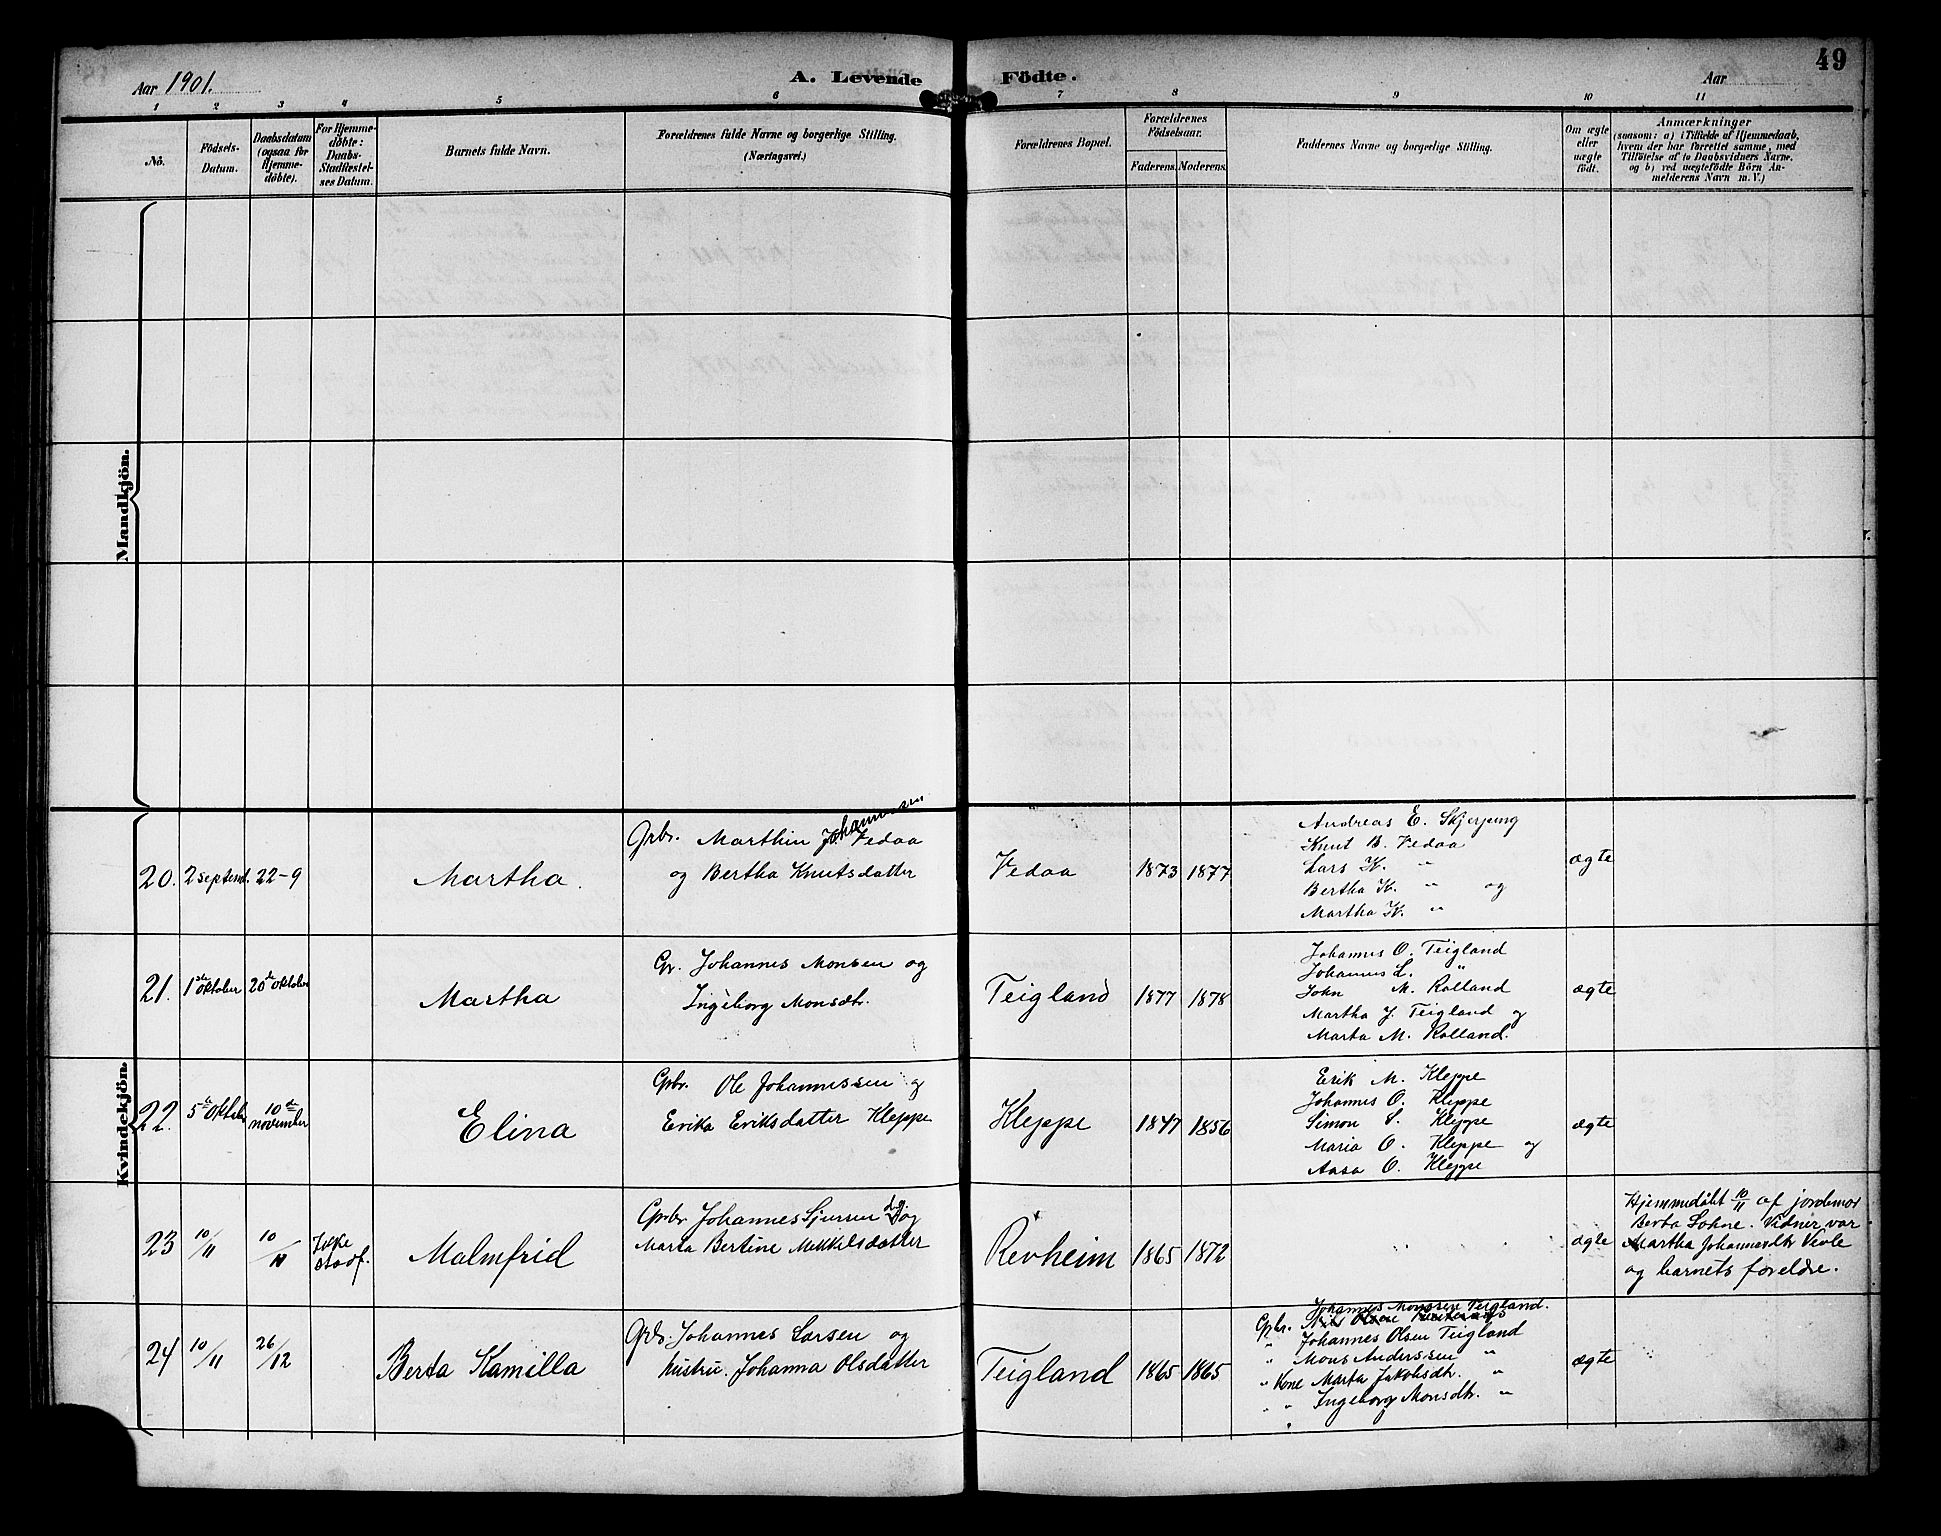 49
Aar 1901.
A. Levende Födte.
Aar
1 2 3 4 5 6 7 8 9 10 11
Nô.
Födsels-
Datum.
Daabsdatum
(ogsaa for
Hjemme-
döbte).
For Hjemme-
döbte:
Daabs-
Stadfæstel-
ses Datum.
Barnets fulde Navn.
Forældrenes fulde Navne og borgerlige Stilling.
(Næringsvei.)
Forældrenes Bopæl.
Forældrenes
Födselsaar.
Faderens.
Moderens.
Faddernes Navne og borgerlige Stilling.
Om ægte
eller
uægte
födt.
Anmærkninger
(saasom: a) i Tilfælde af Hjemmedaab,
hvem der har forrettet samme, med
Tilföielse af to Daabsvidners Navne.
og b) ved uægtefödte Börn An-
melderens Navn m. V.)
Mandkjön.
Kvindekjön.
20. 2 septemb. 22-9
Martha.
Grbr. Marthin Johannessen Vedaa
og Bertha Knutsdatter
Vedaa
1873 1877
Andreas E. Skjerping
Knut B. Vedaa
Lars K. "
Bertha K. " og
Martha K. "
ægte
21. 1ste Oktober 20de Oktober
Martha
Gr. Johannes Monsen og
Ingeborg Monsdtr.
Teigland
1877 1878
Johannes O. Teigland
Johannes L. "
John M. Rolland
Martha J. Teigland og
Marta M. Rolland.
ægte
22. 5te Oktober 10de november
Elina
Gbr. Ole Johannessen og
Erika Eriksdatter Kleppe
Kleppe
1847 1856
Erik M. Kleppe
Johannes O. Kleppe
Simon S. Kleppe
Maria O. Kleppe og
Aasa O. Kleppe
ægte
23 10/11 10/11 Ikke stadf.
Malmfrid
Gbr. Johannes Sjursen og
Marta Bertine Mikkelsdatter
Revheim
1865 1872
ægte
Hjemmedöbt 10/11 af jordemor
Berta Lohne. Vidner var
Martha Johannesdtr Vevle
og barnets foreldre.
24 10/11 26/12
Berta Kamilla
Grbr. Johannes Larsen og
hustru. Johanna Olsdatter
Teigland
1865 1865
Johannes Monssen Teigland.
Gbr.
" Johannes Olsen Teigland
" Mons Anderssen "
" Kone Marta Jakobsdtr. "
" " Ingeborg Monsdtr. "
ægte